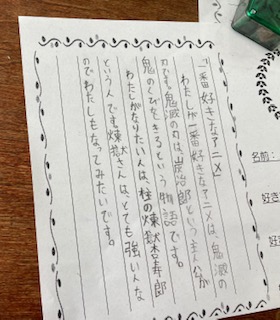 「一番好きなアニメ」
わたしが一番好きなアニメは、鬼滅の
刃です。鬼滅の刃は炭治郎という主人公が
鬼のくびをきるという物語です。
わたしがなりたい人は、柱の煉獄杏寿郎
という人です。煉獄さんは、とても強い人な
のでわたしもなってみたいです。
名前：
好き
好